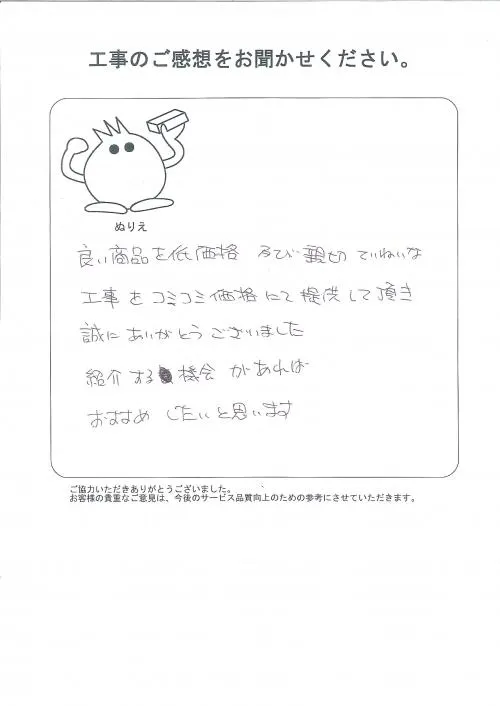 工事のご感想をお聞かせください。
ぬりえ
良い商品を低価格 及び 親切 ていねいな
工事を コミコミ価格にて 提供して頂き
誠に ありがとうございました
紹介する機会 があれば
おすすめ したいと思います
ご協力いただきありがとうございました。
お客様の貴重なご意見は、今後のサービス品質向上のための参考にさせていただきます。